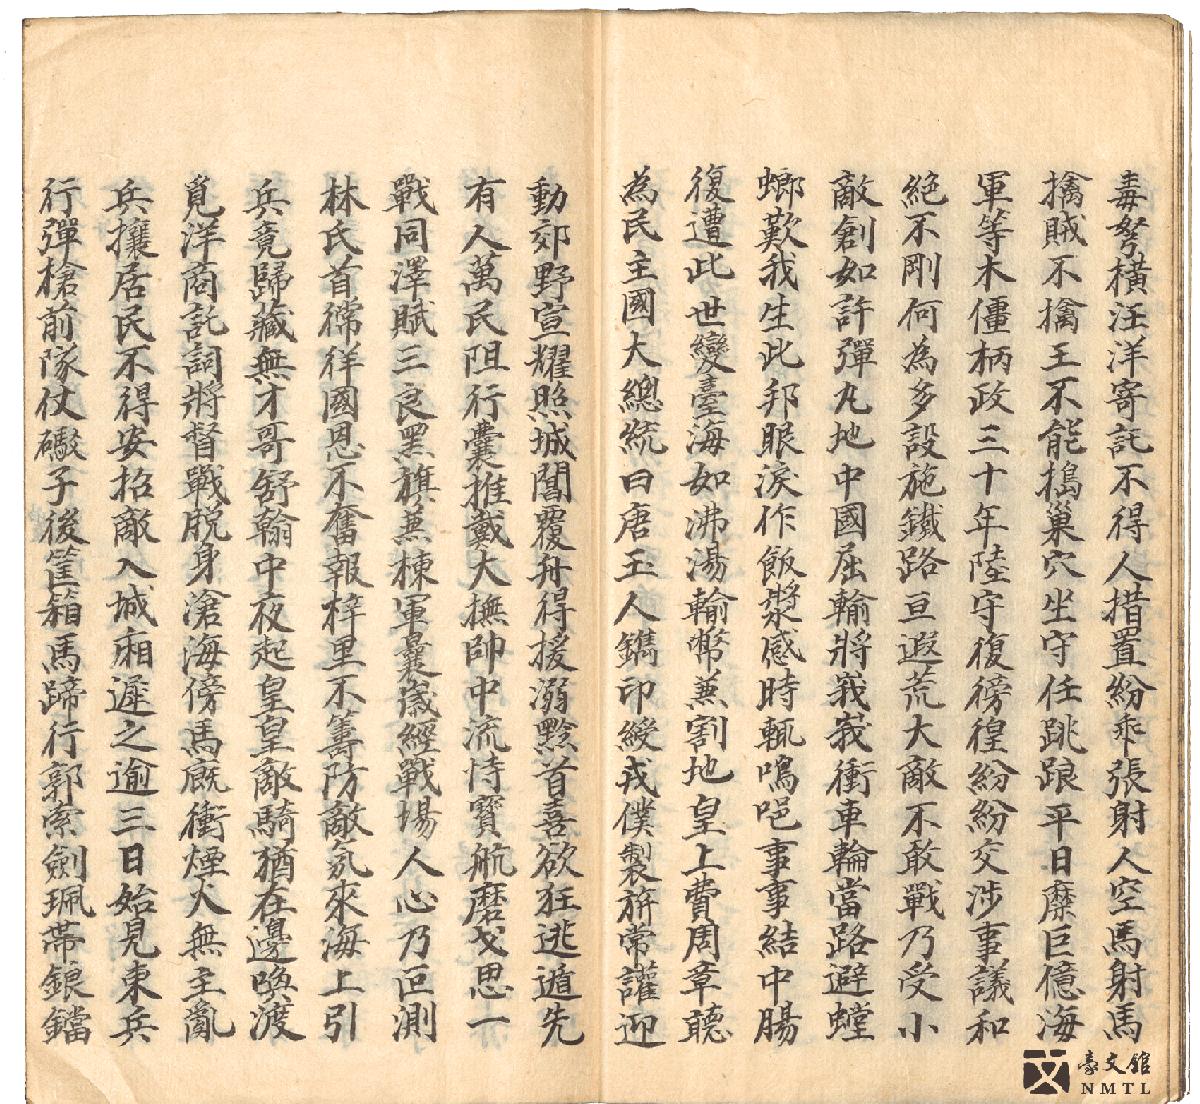 毒弩橫汪洋寄託不得人措置紛乖張射人空馬射馬
擒賊不擒王不能搗巢穴坐守任跳踉平日糜巨億海
軍等木僵柄政三十年陸守復徬徨紛紛交涉事議和
絕不剛何為多設施鐵路亘遐荒大敵不敢戰乃受小
敵創如許彈丸地中國屈輸將峩峩衝車輪當路避螳
螂歎我生此邦眼淚作飯漿感時輒嗚唈事事結中腸
復遭此世變臺海如沸湯輸幣兼割地皇上費周章聽
為民主國大總統曰唐玉人鐫印綬戎僕製旂常讙迎
動郊野宣耀照城闉覆舟得援溺黔首喜欲狂逃遁先
有人萬民阻行囊推戴大撫帥中流恃寶航磨戈思一
戰同澤賦三良黑旗兼棟軍曩歲經戰場人心乃叵測
林氏首徜徉國恩不奮報梓里不籌防敵氛來海上引
兵竟歸藏無才哥舒翰中夜起皇皇敵騎猶在邊喚渡
覓洋商託詞將督戰脫身滄海傍馬廐衝煙火無主亂
兵攘居民不得安招敵入城廂遲之逾三日始見東兵
行彈槍前隊仗礮子後筐箱馬蹄行郭索劍珮帶鋃鐺
臺文館
NMTL